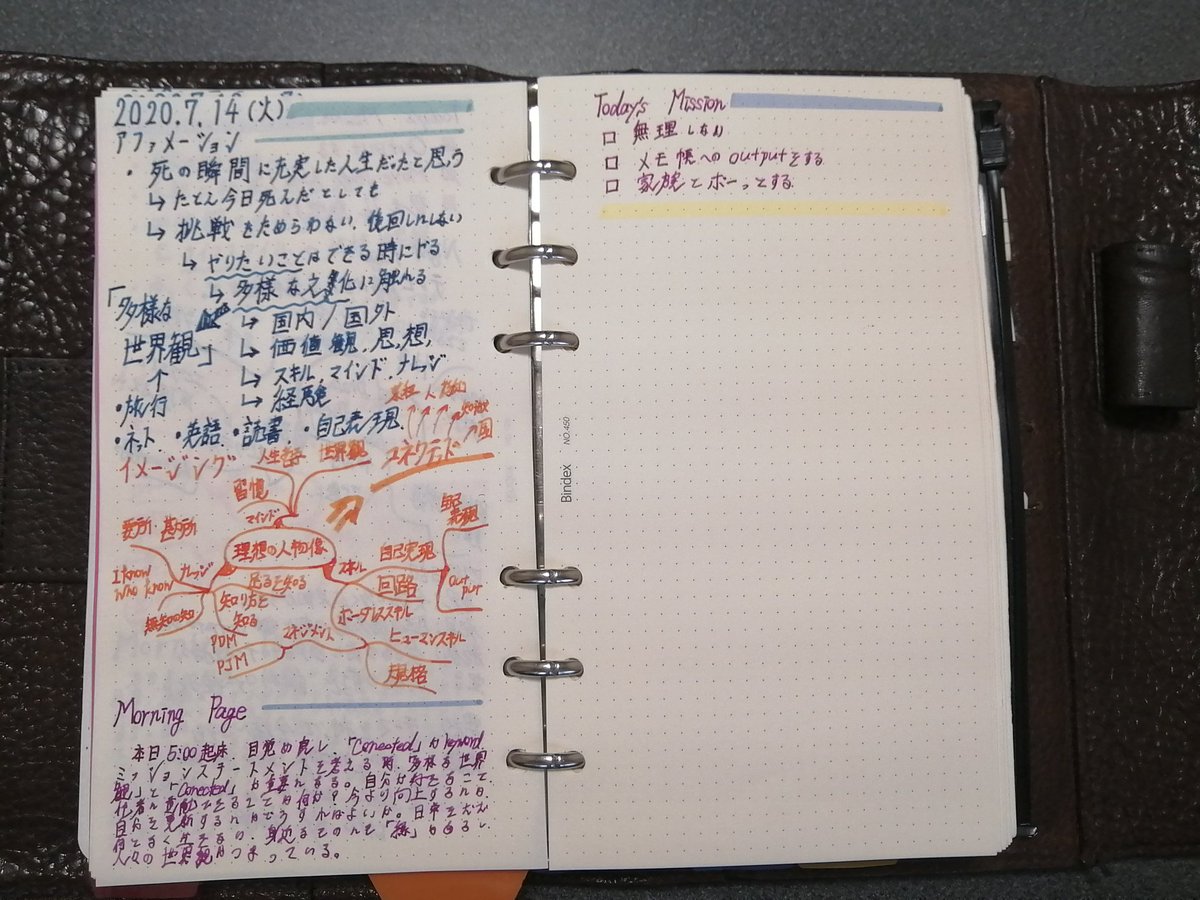 2020.7.14(火)
アファメーション
・死の瞬間に充実した人生だったと思う
↳たとえ今日死んだとしても
↳挑戦をためらわない、後回しにしない
↳やりたいことはできる時にやる
↳多様な文化に触れる
「多様な世界観」
↑
・旅行
・ネット ・英語 ・読書 ・自己表現
↳国内/国外
↳価値観、思想、
↳スキル、マインド、ナレッジ
↳経験
人
知識
国
コネクテッド
イメージング
人生哲学
世界観
習慣
マインド
理想の人物像
ナレッジ
長所・短所
I know
who know
無知の知
足るを知る
知り方を
知る
スキル
自己実現
自己
表現
Out
put
回路
ポータブルスキル
ヒューマンスキル
規格
マネジメント
PDM
PJM
Morning Page
本日5:00起床 目覚め良し、「Conected」がkeyword
ミッションステートメントを考える時、多様な世界
観」と「Conected」が重要になる。自分が
他者に 何か?今より向上する
自分を更新する どうすればよいか。日常を
何となく 身近なものにも「縁」がある
人々の世界観がつまっている。
Today's Mission
□ 無理しない
□ メモ帳へのoutputをする
□ 家族とボーっとする
Bindex NO.450